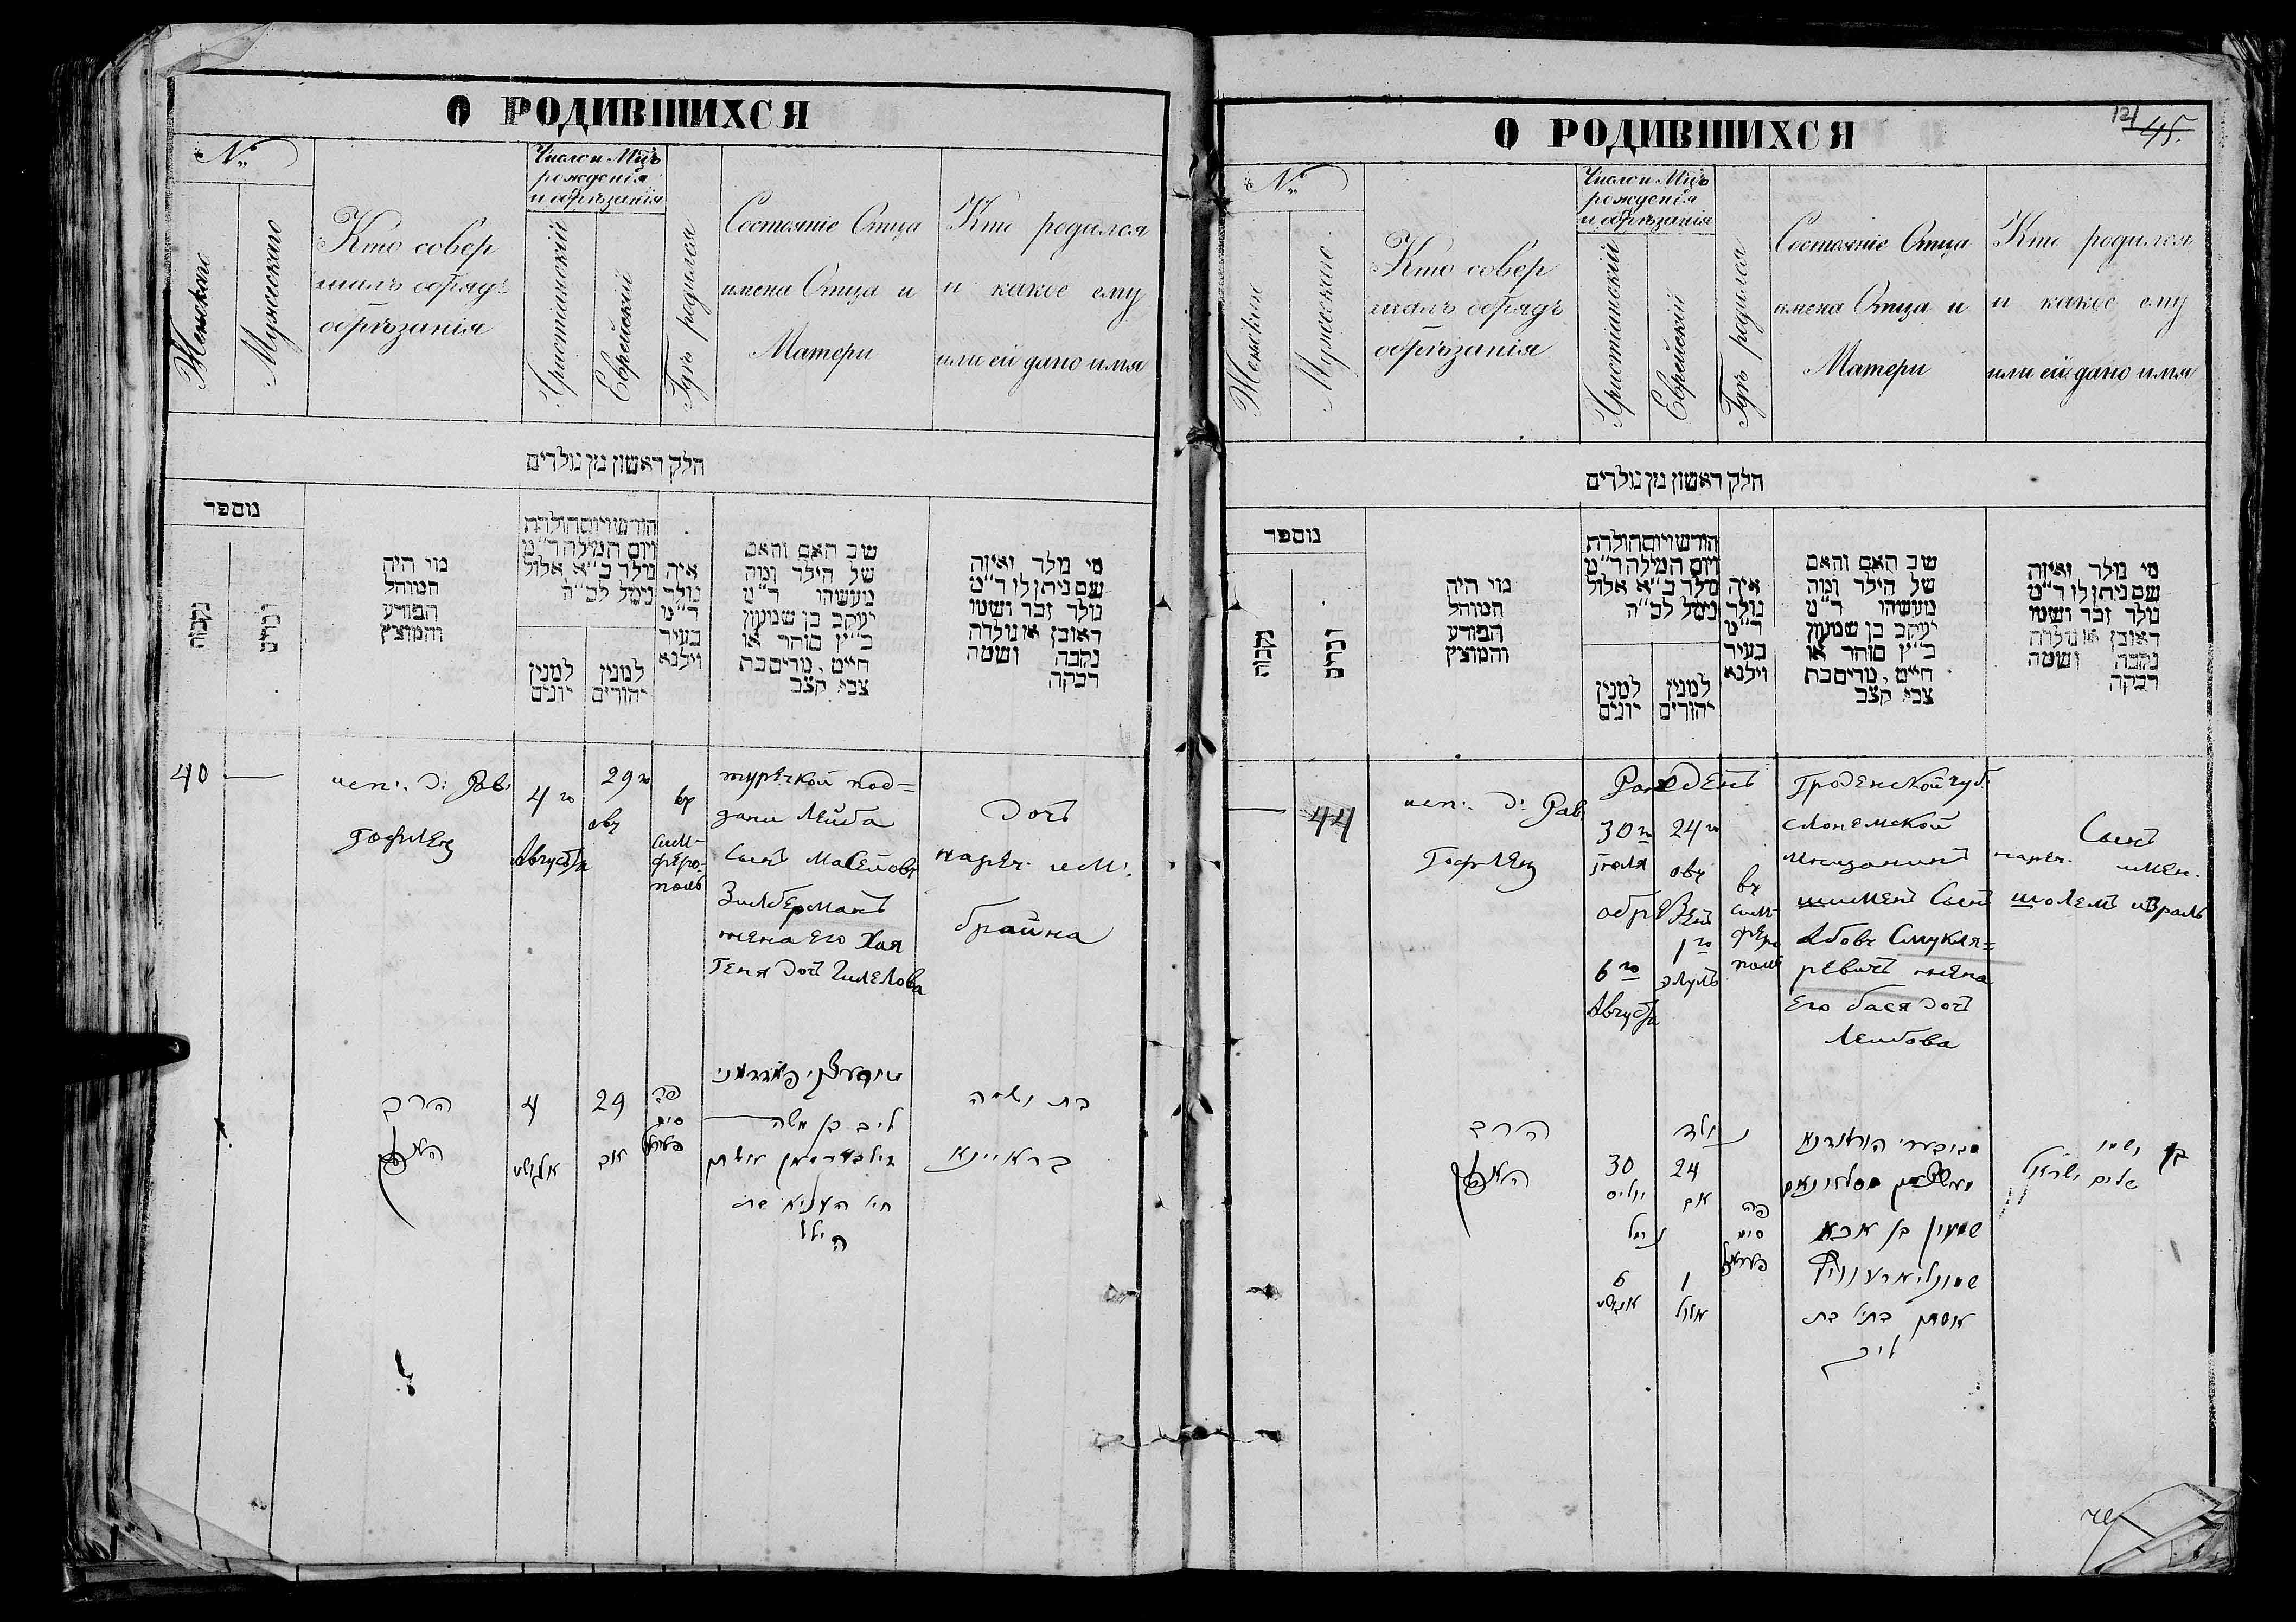 О РОДИВШИХСЯ
№
Женскаго
Мужескаго
Кто совер
шалъ обрядъ
обрѣзанія
Число и Мцъ
рожденія
и обрѣзанія
Христіанскій
Еврейскій
Гдѣ родился
Состояніе Отца
имена Отца и
Матери
Кто родился
и какое ему
или ей дано имя
חלק ראשון מן נולדים
מוספר
נקבות
זכרים
מי היה
המוהל
הפורע
והמוצץ
חודש ויום הולדת
ויום המילה ד״מ
נולד כ״א אלול
נימל לכ״ה
למנין
יונים
למנין
יהודים
איה
נולד
ד״מ
בעיר
וילנא
שב האם והאם
של הילד ומה
מעשהו ד״מ
יעקב בן שמעון
כ״ץ סוחר או
חייט, מרים בת
צבי קצב
מי נולד ואיזה
שם ניתן לו ד״מ
נולד זכר ושמו
ראובן או נולדה
נקבה ושמה
רבקה
40
—
исп. д: Рав.
Гофленц
4го
Августа
29го
овъ
въ
сим-
феро-
поль
турецкой под=
дани Лейба
Сынъ Масеновъ
Зилберманъ
жена его Хая
Геня дочь Гилелова
Дочь
нареч. им.
брайна
הרב
4
אוגוסט
29
אב
פה
סים
ליב בן משה
זילבערמאן אשתו
חיה העניא בת
הילל
בת ושמה
בראיינא
О РОДИВШИХСЯ
121
45.
№
Женскаго
Мужескаго
Кто совер
шалъ обрядъ
обрѣзанія
Число и Мцъ
рожденія
и обрѣзанія
Христіанскій
Еврейскій
Гдѣ родился
Состояніе Отца
имена Отца и
Матери
Кто родился
и какое ему
или ей дано имя
חלק ראשון מן נולדים
מוספר
נקבות
זכרים
מי היה
המוהל
הפורע
והמוצץ
חודש ויום הולדת
ויום המילה ד״מ
נולד כ״א אלול
נימל לכ״ה
למנין
יונים
למנין
יהודים
איה
נולד
ד״מ
בעיר
וילנא
שב האם והאם
של הילד ומה
מעשהו ד״מ
יעקב בן שמעון
כ״ץ סוחר או
חייט, מרים בת
צבי קצב
מי נולד ואיזה
שם ניתן לו ד״מ
נולד זכר ושמו
ראובן או נולדה
נקבה ושמה
רבקה
—
44
исп. д: Рав.
Гофленц
Рожденъ
30го 24го
іюля овъ
обрѣзенъ
6го 1го
Августа элулъ
въ
сим-
феро
поль
Гроденской губ.
слонемской
мещанинъ
шименъ Сынъ
Абовъ Смукля=
ревичъ жена
его бася дочь
Лейбова
Сынъ
нареч. имен.
шолемъ израль
הרב
נולד
30 24
יוליס אב
נימל
6 1
אוגוסט אלול
פה
סים
שמעון בן אבא
אשתו בתיה בת
ליב
בן ושמו
שלום ישראל